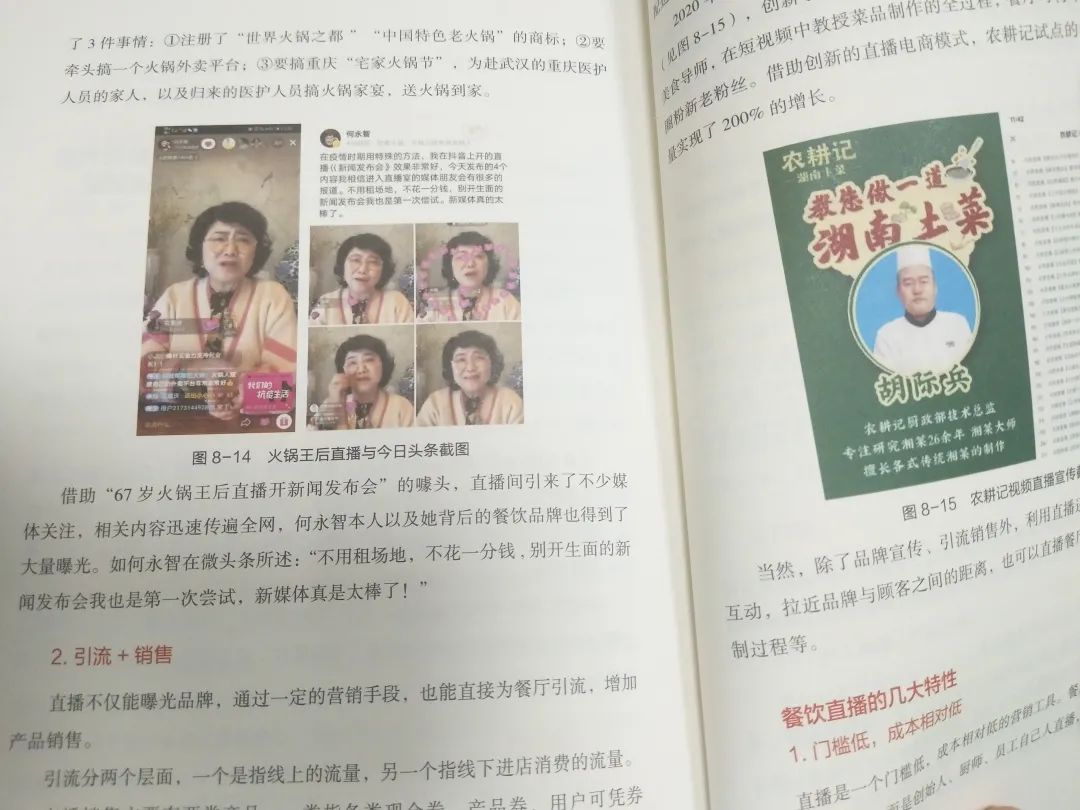 了3件事情：①注册了“世界火锅之都”“中国特色老火锅”的商标；②要
牵头搞一个火锅外卖平台；③要搞重庆“宅家火锅节”，为赴武汉的重庆医护
人员的家人，以及归来的医护人员搞火锅家宴，送火锅到家。
何永智
在疫情时期用特殊的方法，我在抖音上开的直
播《新闻发布会》效果非常好，今天发布的4个
内容我相信进入直播室的媒体朋友会有很多的
报道。不用租场地，不花一分钱，别开生面的
新闻发布会我也是第一次偿试。新媒体真的太
棒了。
我们的
抗疫生活
图 8-14 火锅王后直播与今日头条截图
借助“67岁火锅王后直播开新闻发布会”的噱头，直播间引来了不少媒
体关注，相关内容迅速传遍全网，何永智本人以及她背后的餐饮品牌也得到了
大量曝光。如何永智在微头条所述：“不用租场地，不花一分钱，别开生面的新
闻发布会我也是第一次尝试，新媒体真是太棒了！”
2. 引流 + 销售
直播不仅能曝光品牌，通过一定的营销手段，也能直接为餐厅引流，增加
产品销售。
引流分两个层面，一个是指线上的流量，另一个指线下进店消费的流量。
2020
（见图 8-15），创新
美食导师，在短视频中教授菜品制作的全过程，
圈粉新老粉丝。借助创新的直播电商模式，农耕记试点的
量实现了 200% 的增长。
农耕记
湖南土菜
教您做一道
湖南土菜
胡际兵
农耕记厨政部技术总监
专注研究湘菜26余年 湘菜大师
擅长各式传统湘菜的制作
11:42
图 8-15 农耕记视频直播宣传
当然，除了品牌宣传、引流销售外，利用直播
互动，拉近品牌与顾客之间的距离，也可以直播餐
制过程等。
餐饮直播的几大特性
1. 门槛低，成本相对低
直播是一个门槛低，成本相对低的营销工具。
是创始人、厨师、员工自己人直播，